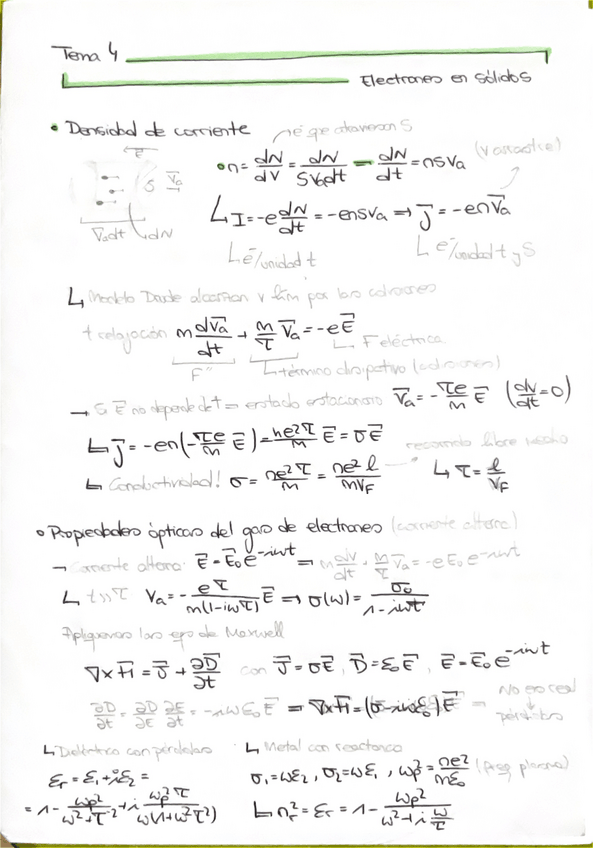 Tema 4
Electrones en sólidos
• Densidad de corriente
e⁻ que atraviesan S
E⃗
S
V⃗a
V⃗adt
dN
• n = dN/dV = dN/(SVadt) → dN/dt = nSVa
(V arrastre)
↳ I = -e dN/dt = -enSVa ⇒ J⃗ = -enV⃗a
↳ e⁻/unidad t
↳ e⁻/unidad t y S
↳ Modelo Drude alcanzan V lím por las colisiones
t relajación m dV⃗a/dt + m/τ V⃗a = -eE⃗
↳ F eléctrica
F
↳ término disipativo (colisiones)
→ Si E⃗ no depende de t = estado estacionario V⃗a = -τe/m E⃗ (dv/dt = 0)
↳ J⃗ = -en(-τe/m E⃗) = ne²τ/m E⃗ = σE⃗
recorrido libre medio
↳ Conductividad! σ = ne²τ/m = ne²l/(mVF)
↳ τ = l/VF
• Propiedades ópticas del gas de electrones (corriente alterna)
→ Corriente alterna: E⃗ = E⃗₀e^(-iωt) ⇒ m dv/dt + m/τ V⃗a = -eE₀e^(-iωt)
↳ t>>τ Va = - eτ/(m(1-iωτ)) E⃗ ⇒ σ(ω) = σ₀/(1-iωτ)
Apliquemos las eqs de Maxwell
∇×H⃗ = J⃗ + ∂D⃗/∂t con J⃗ = σE⃗, D⃗ = ε₀E⃗, E⃗ = E⃗₀e^(-iωt)
∂D⃗/∂t = ∂D⃗/∂E ∂E/∂t = -iωε₀E⃗ ⇒ ∇×H⃗ = (σ-iωε₀)E⃗ =
No es real
pérdidas
↳ Dieléctrico con pérdidas
↳ Metal con reactancia
εr = ε₁+iε₂ =
σ₁ = ωε₂, σ₂ = ωε₁, ωp² = ne²/(mε₀) (freq plasma)
= 1 - ωp²/(ω²+τ⁻²) + i ωp²τ/(ω(1+ω²τ²))
↳ nr² = εr = 1 - ωp²/(ω²+i ω/τ)